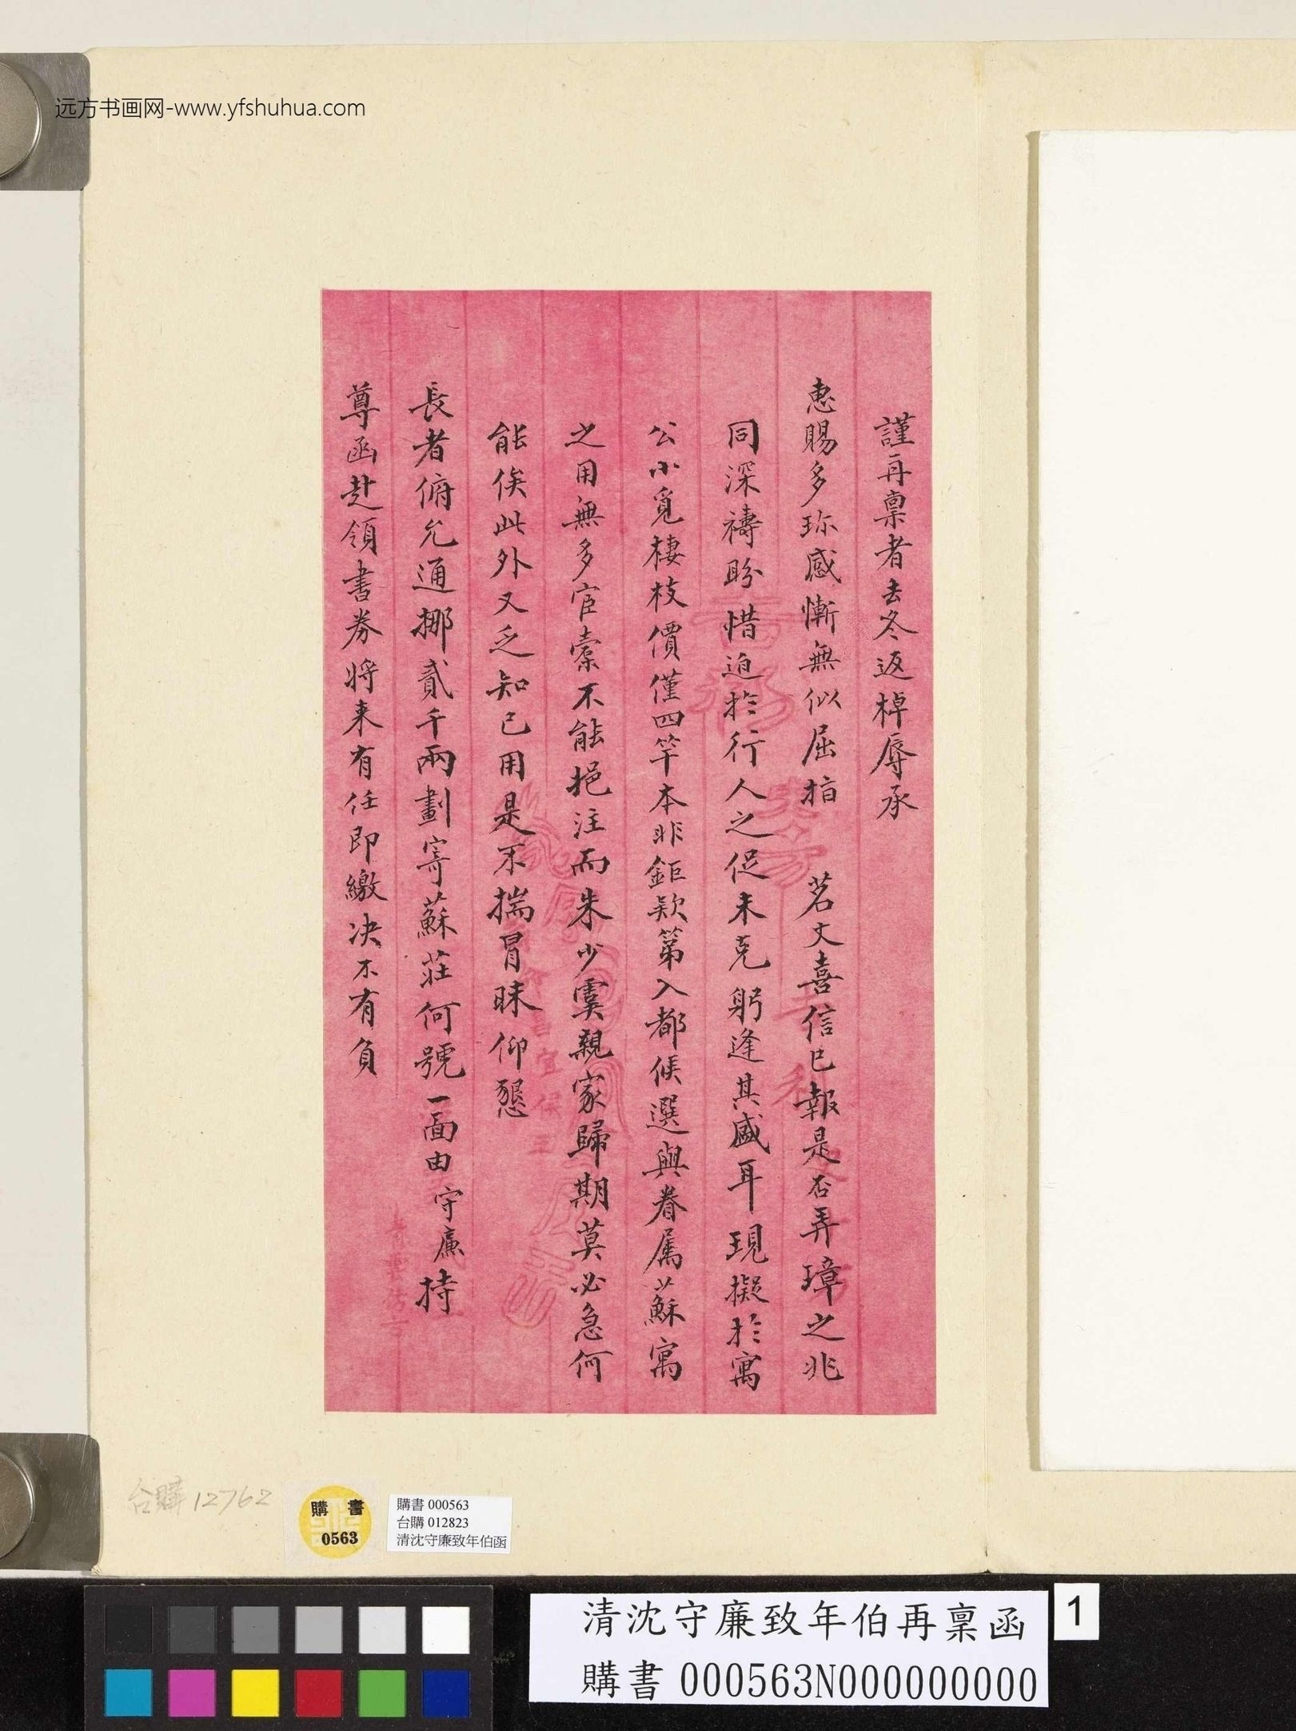 远方书画网-www.yfshuhua.com
謹再稟者去冬返棹辱承
惠賜多珎感慚無似屈指 茗文喜信已報是否弄璋之兆
同深禱盼惜迫於行人之促未克躬逢其盛耳現擬於寓
公小覓棲枝價僅四竿本非鉅欵第入都候選與眷屬蘇寓
之用無多宦橐不能挹注而朱少虞親家歸期莫必急何
能俟此外又乏知己用是不揣冒昧仰懇
長者俯允通挪貳千兩劃寄蘇莊何號一面由守廉持
尊函赴領書券將来有任即繳决不有負
台購12762
購書
0563
購書 000563
台購 012823
清沈守廉致年伯函
清沈守廉致年伯再稟函
購書 000563N000000000
1